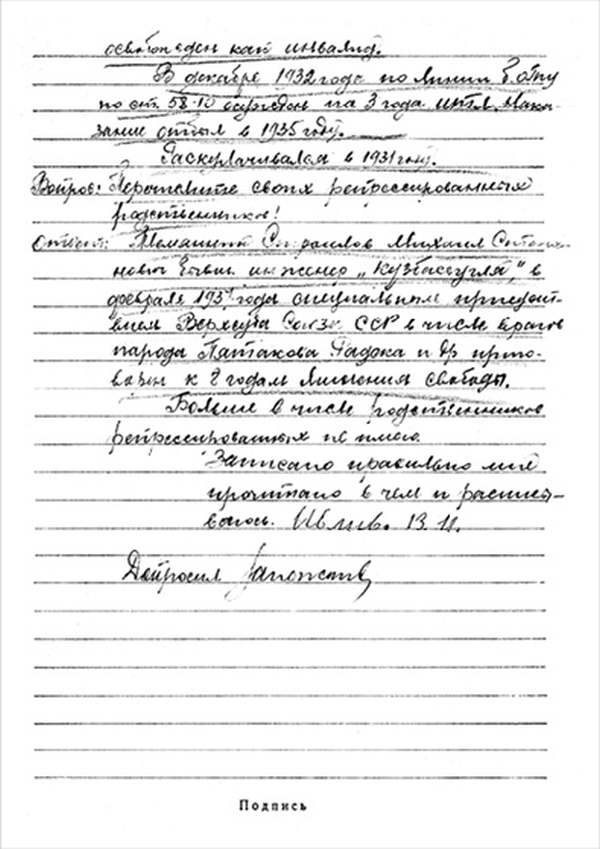 освобожден как инвалид.
В декабре 1932 года по линии б. ОГПУ
по ст. 58-10 осужден на 3 года ИТЛ. Нака-
зание отбыл в 1935 году.
Раскулачивался в 1931 году.
Вопрос: Перечислите своих репрессированных
родственников!
Ответ: Михаил
бывш. инженер „Кузбассугля", в
феврале 1937 года специальным присут-
ствием Верхсуда Союза ССР в числе врагов
народа Пятакова Радека и др приго-
ворен к 8 годам лишения свободы.
Больше в числе родственников
репрессированных не имею.
Записано правильно мне
прочитано в чем и расписы-
ваюсь. 13.11.
Допросил
Подпись